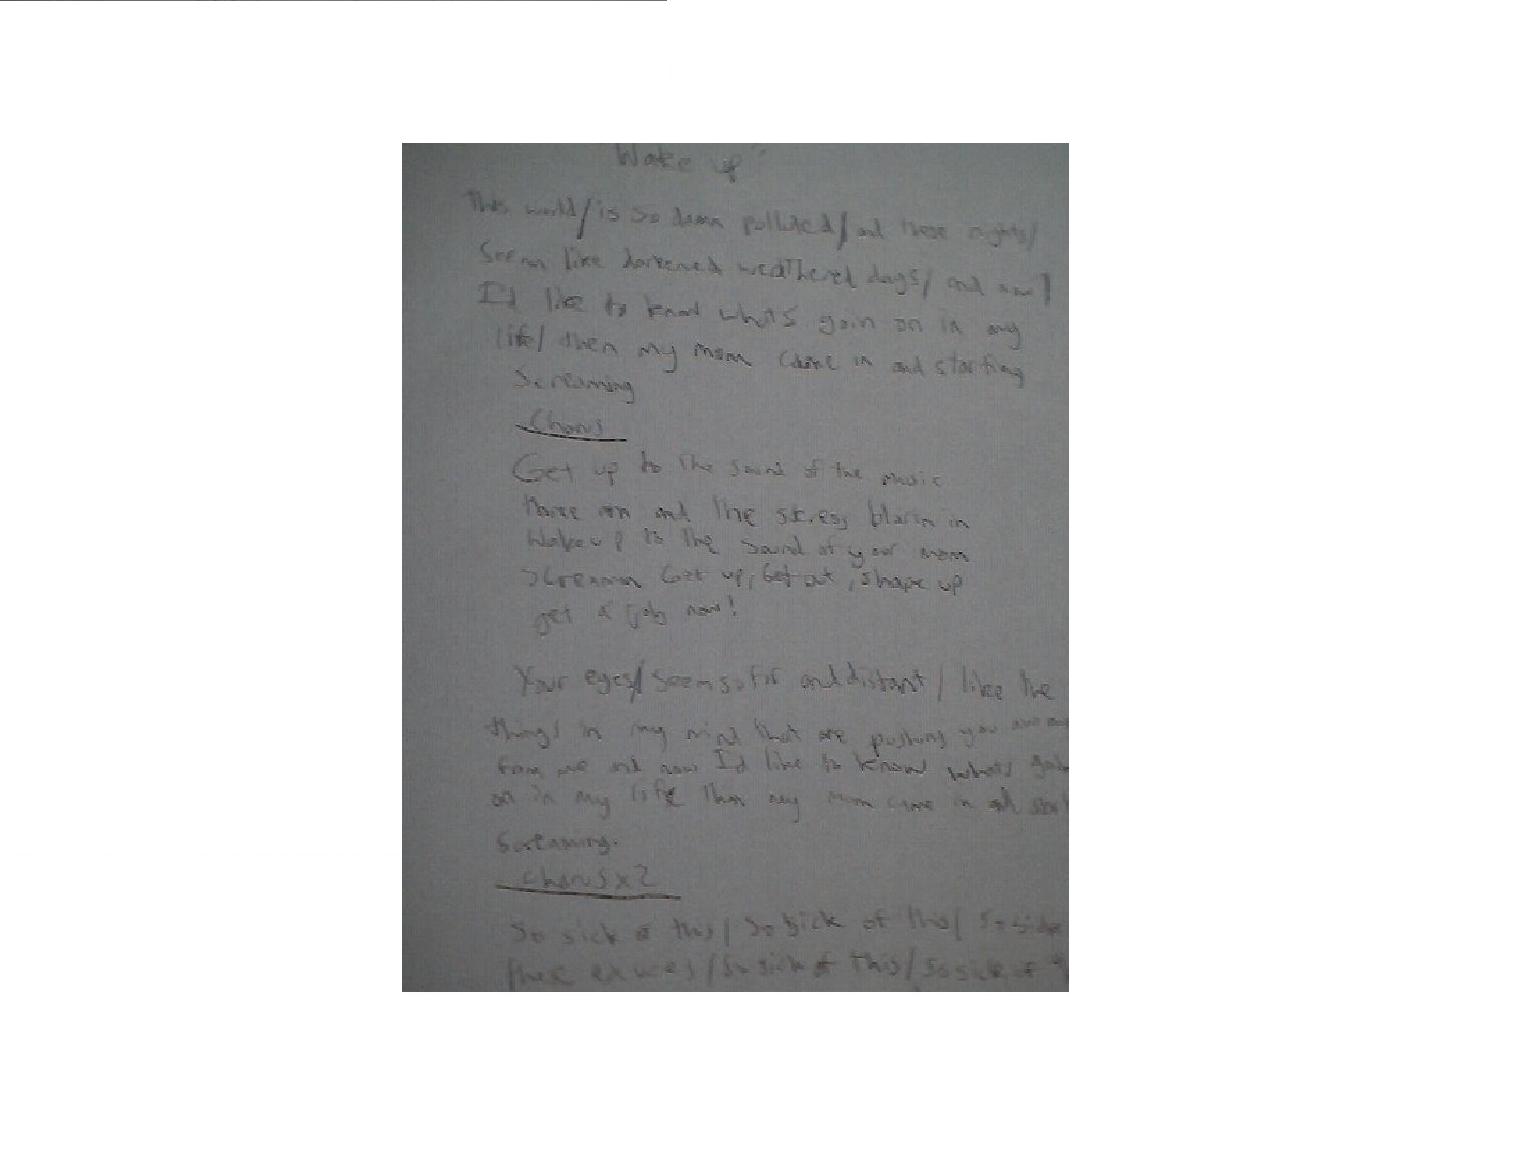 "Wake up"
This world/is so damn polluted/and these nights/
Seem like darkened weathered days/ and now/
I'd like to know whats goin on in my
life/ then my mom came in and starting
screaming
Chorus
Get up to the sound of the music
on and the stress blarin in
Wake up to the sound of your mom
screamin Get up, Get out, shape up
get a job now!
Your eyes/ seem so far and distant/ like the
things in my mind that are pushing you away
from me and now I'd like to know whats
on in my life then my mom came in and
screaming.
chorus x2
So sick of this/ So sick of this/ So sick
these excuses/ So sick of this/ So sick of